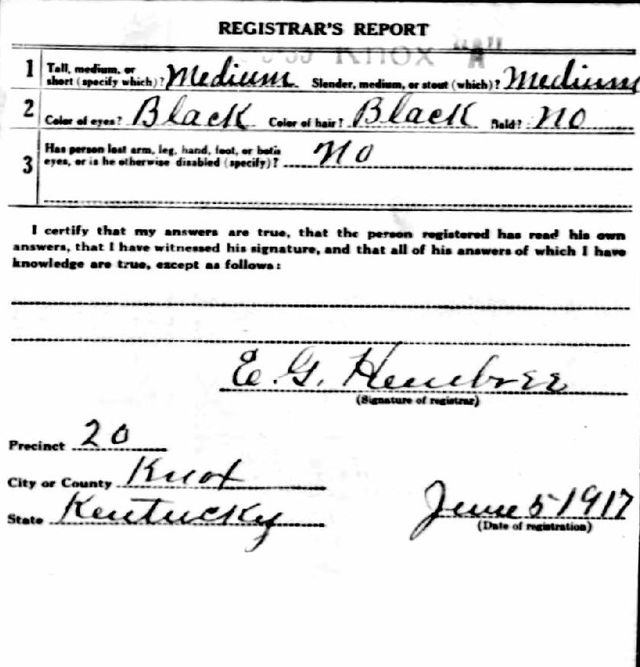 REGISTRAR'S REPORT
KNOX "A"
1 Tall, medium, or short (specify which)? Medium Slender, medium, or stout (which)? Medium
2 Color of eyes? Black Color of hair? Black Bald? No
3 Has person lost arm, leg, hand, foot, or both
eyes, or is he otherwise disabled (specify)? No
I certify that my answers are true, that the person registered has read his own
answers, that I have witnessed his signature, and that all of his answers of which I have
knowledge are true, except as follows:
E. G. Hembree
(Signature of registrar)
Precinct 20
City or County Knox
State Kentucky
June 5 1917
(Date of registration)